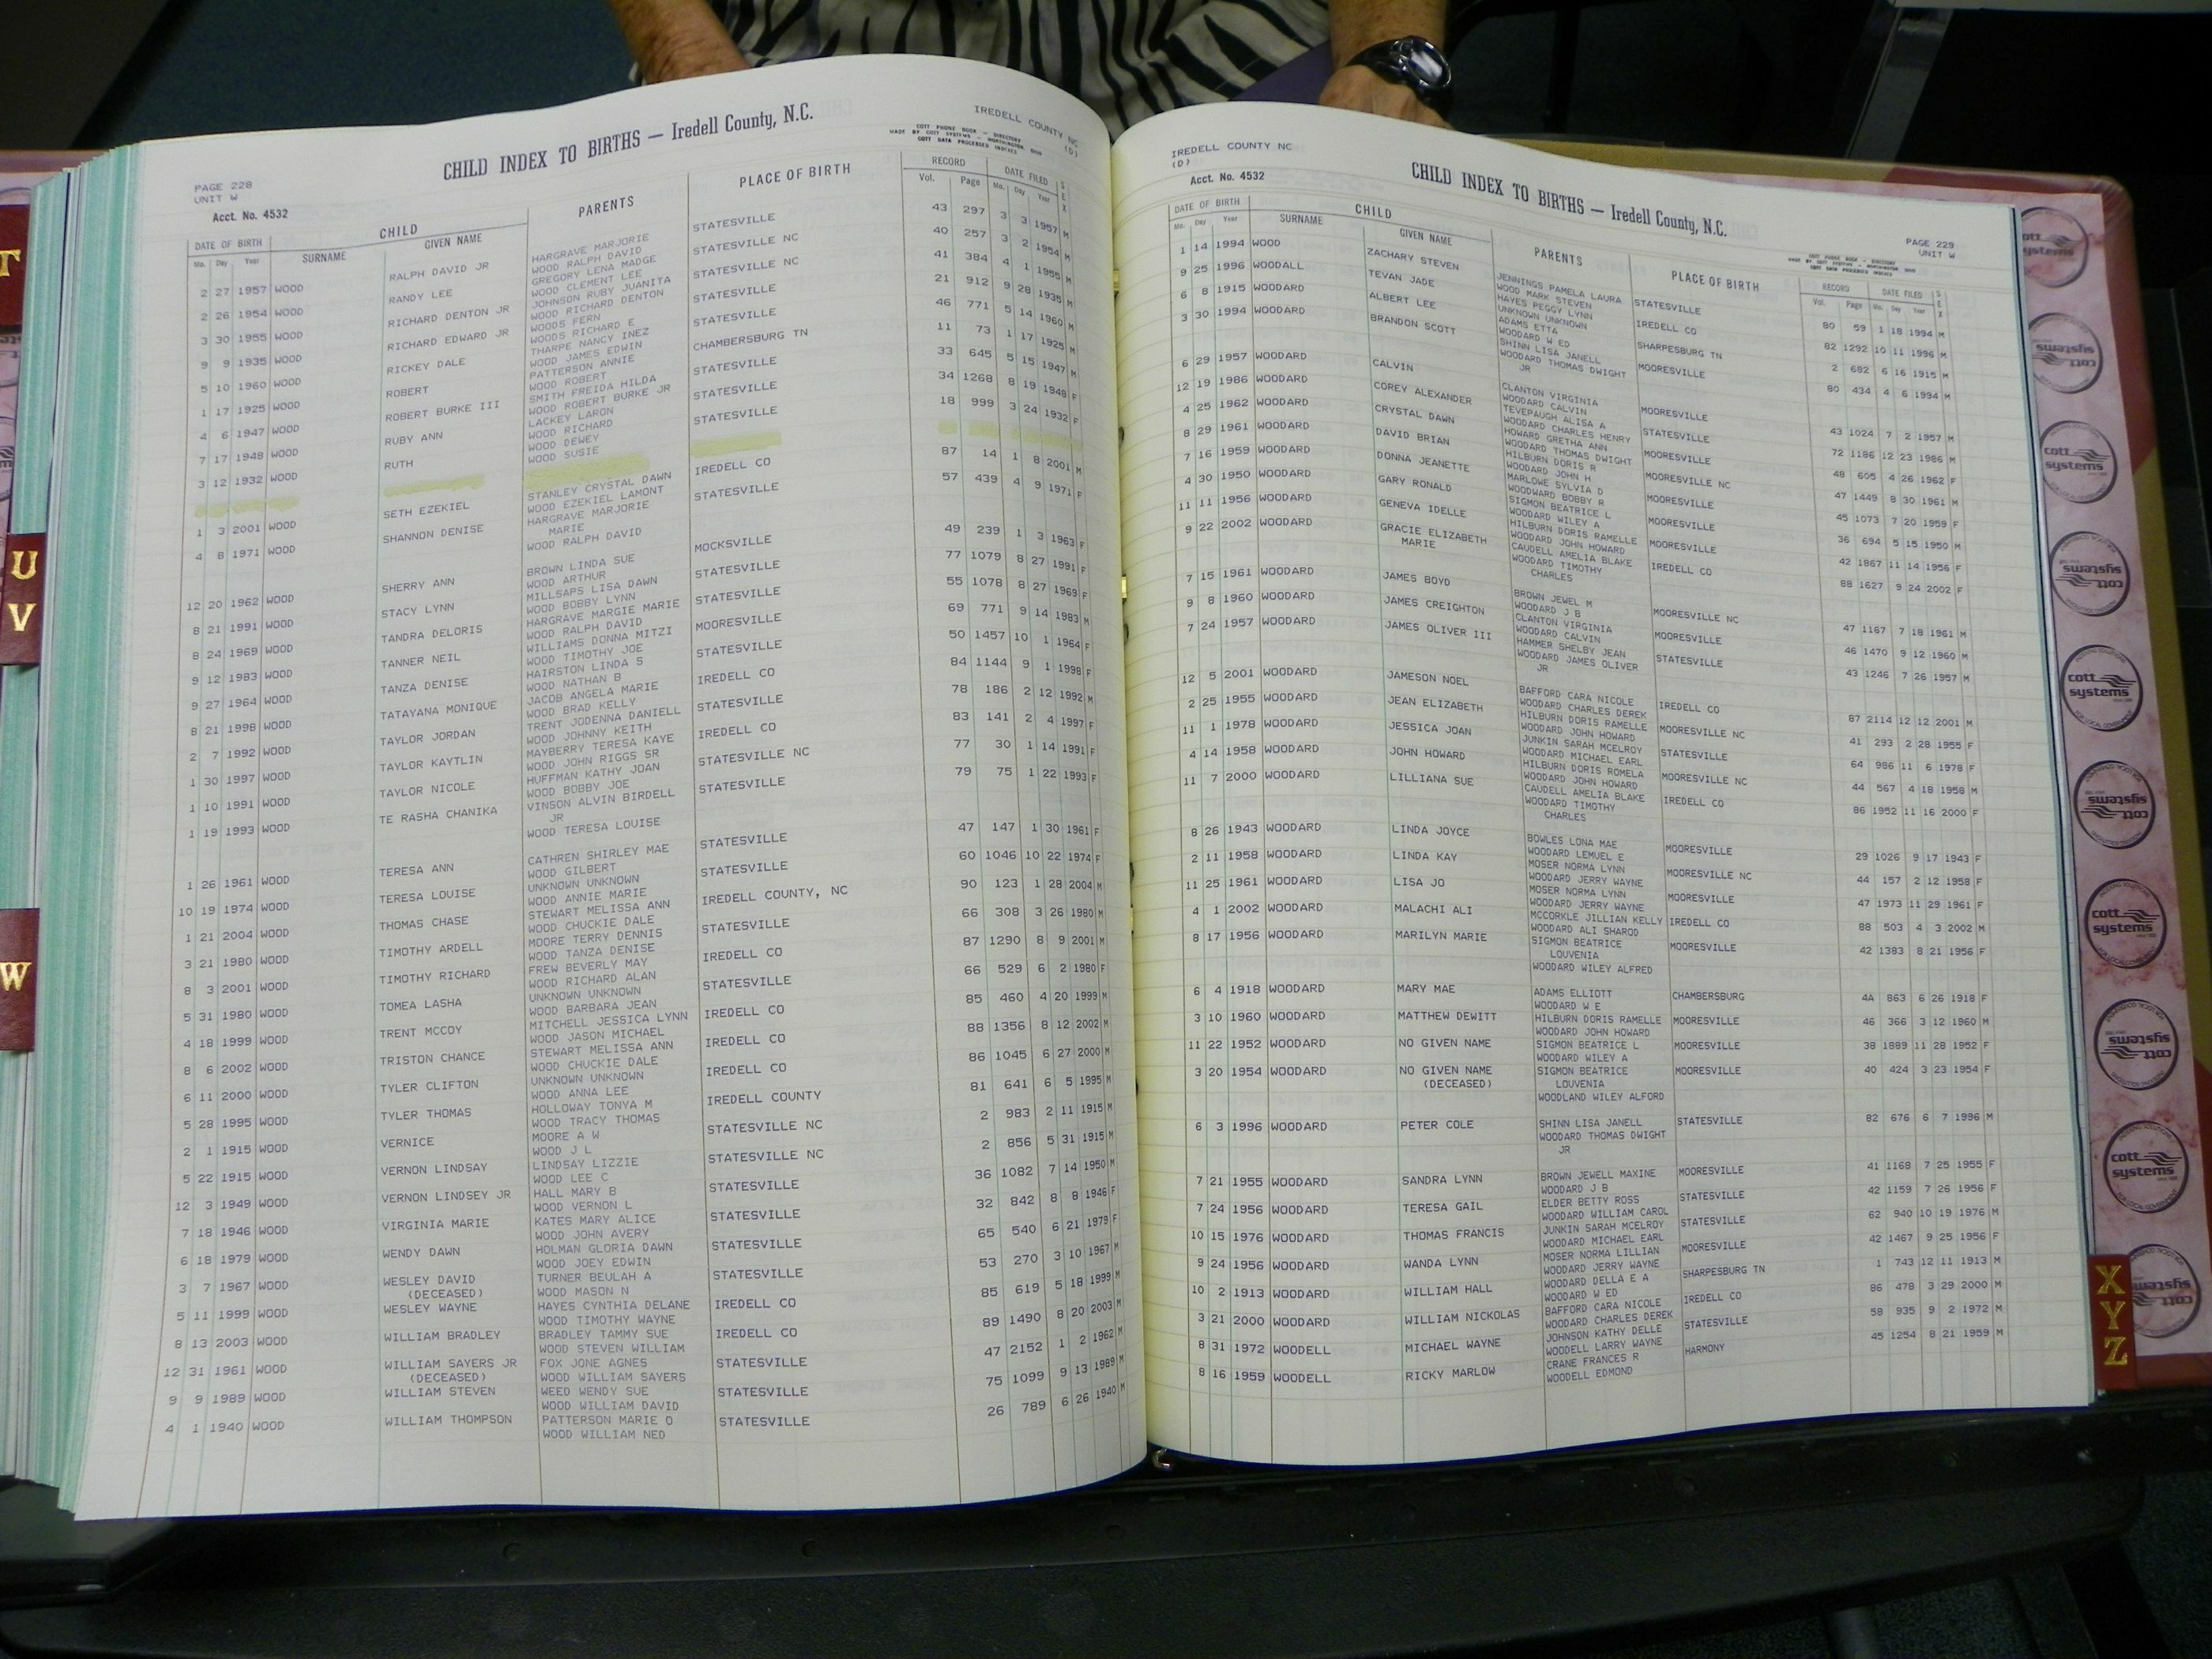 IREDELL COUNTY NC
(D)
CHILD INDEX TO BIRTHS — Iredell County, N.C.
COTT PHONE BOOK — DIRECTORY
MADE BY COTT SYSTEMS — WORTHINGTON, OHIO
COTT DATA PROCESSED INDICES
PAGE 228
UNIT W
Acct. No. 4532
DATE OF BIRTH CHILD PARENTS PLACE OF BIRTH RECORD DATE FILED SEX
Mo. Day Year SURNAME GIVEN NAME Vol. Page Mo. Day Year
2 27 1957 WOOD RALPH DAVID JR HARGRAVE MARJORIE STATESVILLE 43 297 3 3 1957 M
WOOD RALPH DAVID
2 26 1954 WOOD RANDY LEE GREGORY LENA MADGE STATESVILLE NC 40 257 3 2 1954 M
WOOD CLEMENT LEE
3 30 1955 WOOD RICHARD DENTON JR JOHNSON RUBY JUANITA STATESVILLE NC 41 384 4 1 1955 M
WOOD RICHARD DENTON
9 9 1935 WOOD RICHARD EDWARD JR WOODS FERN STATESVILLE 21 912 9 28 1935 M
WOODS RICHARD E
5 10 1960 WOOD RICKEY DALE THARPE NANCY INEZ STATESVILLE 46 771 5 14 1960 M
WOOD JAMES EDWIN
1 17 1925 WOOD ROBERT PATTERSON ANNIE CHAMBERSBURG TN 11 73 1 17 1925 M
WOOD ROBERT
4 6 1947 WOOD ROBERT BURKE III SMITH FREIDA HILDA STATESVILLE 33 645 5 15 1947 M
WOOD ROBERT BURKE JR
7 17 1948 WOOD RUBY ANN LACKEY LARON STATESVILLE 34 1268 8 19 1948 F
WOOD RICHARD
3 12 1932 WOOD RUTH WOOD DEWEY STATESVILLE 18 999 3 24 1932 F
WOOD SUSIE
1 3 2001 WOOD SETH EZEKIEL STANLEY CRYSTAL DAWN IREDELL CO 87 14 1 8 2001 M
WOOD EZEKIEL LAMONT
4 8 1971 WOOD SHANNON DENISE HARGRAVE MARJORIE STATESVILLE 57 439 4 9 1971 F
MARIE
WOOD RALPH DAVID
12 20 1962 WOOD SHERRY ANN BROWN LINDA SUE MOCKSVILLE 49 239 1 3 1963 F
WOOD ARTHUR
8 21 1991 WOOD STACY LYNN MILLSAPS LISA DAWN STATESVILLE 77 1079 8 27 1991 F
WOOD BOBBY LYNN
8 24 1969 WOOD TANDRA DELORIS HARGRAVE MARGIE MARIE STATESVILLE 55 1078 8 27 1969 F
WOOD RALPH DAVID
9 12 1983 WOOD TANNER NEIL WILLIAMS DONNA MITZI MOORESVILLE 69 771 9 14 1983 M
WOOD TIMOTHY JOE
9 27 1964 WOOD TANZA DENISE HAIRSTON LINDA S STATESVILLE 50 1457 10 1 1964 F
WOOD NATHAN B
8 21 1998 WOOD TATAYANA MONIQUE JACOB ANGELA MARIE IREDELL CO 84 1144 9 1 1998 F
WOOD BRAD KELLY
2 7 1992 WOOD TAYLOR JORDAN TRENT JODENNA DANIELL STATESVILLE 78 186 2 12 1992 M
WOOD JOHNNY KEITH
1 30 1997 WOOD TAYLOR KAYTLIN MAYBERRY TERESA KAYE IREDELL CO 83 141 2 4 1997 F
WOOD JOHN RIGGS SR
1 10 1991 WOOD TAYLOR NICOLE HUFFMAN KATHY JOAN STATESVILLE NC 77 30 1 14 1991 F
WOOD BOBBY JOE
1 19 1993 WOOD TE RASHA CHANIKA VINSON ALVIN BIRDELL STATESVILLE 79 75 1 22 1993 F
JR
WOOD TERESA LOUISE
1 26 1961 WOOD TERESA ANN CATHREN SHIRLEY MAE STATESVILLE 47 147 1 30 1961 F
WOOD GILBERT
10 19 1974 WOOD TERESA LOUISE UNKNOWN UNKNOWN STATESVILLE 60 1046 10 22 1974 F
WOOD ANNIE MARIE
1 21 2004 WOOD THOMAS CHASE STEWART MELISSA ANN IREDELL COUNTY, NC 90 123 1 28 2004 M
WOOD CHUCKIE DALE
3 21 1980 WOOD TIMOTHY ARDELL MOORE TERRY DENNIS STATESVILLE 66 308 3 26 1980 M
WOOD TANZA DENISE
8 3 2001 WOOD TIMOTHY RICHARD FREW BEVERLY MAY IREDELL CO 87 1290 8 9 2001 M
WOOD RICHARD ALAN
5 31 1980 WOOD TOMEA LASHA UNKNOWN UNKNOWN STATESVILLE 66 529 6 2 1980 F
WOOD BARBARA JEAN
4 18 1999 WOOD TRENT MCCOY MITCHELL JESSICA LYNN IREDELL CO 85 460 4 20 1999 M
WOOD JASON MICHAEL
8 6 2002 WOOD TRISTON CHANCE STEWART MELISSA ANN IREDELL CO 88 1356 8 12 2002 M
WOOD CHUCKIE DALE
6 11 2000 WOOD TYLER CLIFTON UNKNOWN UNKNOWN IREDELL CO 86 1045 6 27 2000 M
WOOD ANNA LEE
5 28 1995 WOOD TYLER THOMAS HOLLOWAY TONYA M IREDELL COUNTY 81 641 6 5 1995 M
WOOD TRACY THOMAS
2 1 1915 WOOD VERNICE MOORE A W STATESVILLE NC 2 983 2 11 1915 M
WOOD J L
5 22 1915 WOOD VERNON LINDSAY LINDSAY LIZZIE STATESVILLE NC 2 856 5 31 1915 M
WOOD LEE C
12 3 1949 WOOD VERNON LINDSEY JR HALL MARY B STATESVILLE 36 1082 7 14 1950 M
WOOD VERNON L
7 18 1946 WOOD VIRGINIA MARIE KATES MARY ALICE STATESVILLE 32 842 8 8 1946 F
WOOD JOHN AVERY
6 18 1979 WOOD WENDY DAWN HOLMAN GLORIA DAWN STATESVILLE 65 540 6 21 1979 F
WOOD JOEY EDWIN
3 7 1967 WOOD WESLEY DAVID TURNER BEULAH A STATESVILLE 53 270 3 10 1967 M
(DECEASED) WOOD MASON N
5 11 1999 WOOD WESLEY WAYNE HAYES CYNTHIA DELANE IREDELL CO 85 619 5 18 1999 M
WOOD TIMOTHY WAYNE
8 13 2003 WOOD WILLIAM BRADLEY BRADLEY TAMMY SUE IREDELL CO 89 1490 8 20 2003 M
WOOD STEVEN WILLIAM
12 31 1961 WOOD WILLIAM SAYERS JR FOX JONE AGNES STATESVILLE 47 2152 1 2 1962 M
(DECEASED) WOOD WILLIAM SAYERS
9 9 1989 WOOD WILLIAM STEVEN WEED WENDY SUE STATESVILLE 75 1099 9 13 1989 M
WOOD WILLIAM DAVID
4 1 1940 WOOD WILLIAM THOMPSON PATTERSON MARIE O STATESVILLE 26 789 6 26 1940 M
WOOD WILLIAM NED
IREDELL COUNTY NC
(D)
Acct. No. 4532
CHILD INDEX TO BIRTHS — Iredell County, N.C.
PAGE 229
UNIT W
COTT PHONE BOOK — DIRECTORY
MADE BY COTT SYSTEMS — WORTHINGTON, OHIO
COTT DATA PROCESSED INDICES
DATE OF BIRTH CHILD PARENTS PLACE OF BIRTH RECORD DATE FILED SEX
Mo. Day Year SURNAME GIVEN NAME Vol. Page Mo. Day Year
1 14 1994 WOOD ZACHARY STEVEN JENNINGS PAMELA LAURA STATESVILLE 80 59 1 18 1994 M
WOOD MARK STEVEN
9 25 1996 WOODALL TEVAN JADE HAYES PEGGY LYNN IREDELL CO 82 1292 10 11 1996 M
UNKNOWN UNKNOWN
6 8 1915 WOODARD ALBERT LEE ADAMS ETTA SHARPESBURG TN 2 682 6 16 1915 M
WOODARD W ED
3 30 1994 WOODARD BRANDON SCOTT SHINN LISA JANELL MOORESVILLE 80 434 4 6 1994 M
WOODARD THOMAS DWIGHT
JR
6 29 1957 WOODARD CALVIN CLANTON VIRGINIA MOORESVILLE 43 1024 7 2 1957 M
WOODARD CALVIN
12 19 1986 WOODARD COREY ALEXANDER TEVEPAUGH ALISA A STATESVILLE 72 1186 12 23 1986 M
WOODARD CHARLES HENRY
4 25 1962 WOODARD CRYSTAL DAWN HOWARD GRETHA ANN MOORESVILLE 48 605 4 26 1962 F
WOODARD THOMAS DWIGHT
8 29 1961 WOODARD DAVID BRIAN HILBURN DORIS R MOORESVILLE NC 47 1449 8 30 1961 M
WOODARD JOHN H
7 16 1959 WOODARD DONNA JEANETTE MARLOWE SYLVIA D MOORESVILLE 45 1073 7 20 1959 F
WOODWARD BOBBY R
4 30 1950 WOODARD GARY RONALD SIGMON BEATRICE L MOORESVILLE 36 694 5 15 1950 M
WOODARD WILEY A
11 11 1956 WOODARD GENEVA IDELLE HILBURN DORIS RAMELLE MOORESVILLE 42 1867 11 14 1956 F
WOODARD JOHN HOWARD
9 22 2002 WOODARD GRACIE ELIZABETH CAUDELL AMELIA BLAKE IREDELL CO 88 1627 9 24 2002 F
MARIE WOODARD TIMOTHY
CHARLES
7 15 1961 WOODARD JAMES BOYD BROWN JEWEL M MOORESVILLE NC 47 1167 7 18 1961 M
WOODARD J B
9 8 1960 WOODARD JAMES CREIGHTON CLANTON VIRGINIA MOORESVILLE 46 1470 9 12 1960 M
WOODARD CALVIN
7 24 1957 WOODARD JAMES OLIVER III HAMMER SHELBY JEAN STATESVILLE 43 1246 7 26 1957 M
WOODARD JAMES OLIVER
JR
12 5 2001 WOODARD JAMESON NOEL BAFFORD CARA NICOLE IREDELL CO 87 2114 12 12 2001 M
WOODARD CHARLES DEREK
2 25 1955 WOODARD JEAN ELIZABETH HILBURN DORIS RAMELLE MOORESVILLE NC 41 293 2 28 1955 F
WOODARD JOHN HOWARD
11 1 1978 WOODARD JESSICA JOAN JUNKIN SARAH MCELROY STATESVILLE 64 986 11 6 1978 F
WOODARD MICHAEL EARL
4 14 1958 WOODARD JOHN HOWARD HILBURN DORIS ROMELA MOORESVILLE NC 44 567 4 18 1958 M
WOODARD JOHN HOWARD
11 7 2000 WOODARD LILLIANA SUE CAUDELL AMELIA BLAKE IREDELL CO 86 1952 11 16 2000 F
WOODARD TIMOTHY
CHARLES
8 26 1943 WOODARD LINDA JOYCE BOWLES LONA MAE MOORESVILLE 29 1026 9 17 1943 F
WOODARD LEMUEL E
2 11 1958 WOODARD LINDA KAY MOSER NORMA LYNN MOORESVILLE NC 44 157 2 12 1958 F
WOODARD JERRY WAYNE
11 25 1961 WOODARD LISA JO MOSER NORMA LYNN MOORESVILLE 47 1973 11 29 1961 F
WOODARD JERRY WAYNE
4 1 2002 WOODARD MALACHI ALI MCCORKLE JILLIAN KELLY IREDELL CO 88 503 4 3 2002 M
WOODARD ALI SHAROD
8 17 1956 WOODARD MARILYN MARIE SIGMON BEATRICE MOORESVILLE 42 1383 8 21 1956 F
LOUVENIA
WOODARD WILEY ALFRED
6 4 1918 WOODARD MARY MAE ADAMS ELLIOTT CHAMBERSBURG 4A 863 6 26 1918 F
WOODARD W E
3 10 1960 WOODARD MATTHEW DEWITT HILBURN DORIS RAMELLE MOORESVILLE 46 366 3 12 1960 M
WOODARD JOHN HOWARD
11 22 1952 WOODARD NO GIVEN NAME SIGMON BEATRICE L MOORESVILLE 38 1889 11 28 1952 F
WOODARD WILEY A
3 20 1954 WOODARD NO GIVEN NAME SIGMON BEATRICE MOORESVILLE 40 424 3 23 1954 F
(DECEASED) LOUVENIA
WOODLAND WILEY ALFORD
6 3 1996 WOODARD PETER COLE SHINN LISA JANELL STATESVILLE 82 676 6 7 1996 M
WOODARD THOMAS DWIGHT
JR
7 21 1955 WOODARD SANDRA LYNN BROWN JEWELL MAXINE MOORESVILLE 41 1168 7 25 1955 F
WOODARD J B
7 24 1956 WOODARD TERESA GAIL ELDER BETTY ROSS STATESVILLE 42 1159 7 26 1956 F
WOODARD WILLIAM CAROL
10 15 1976 WOODARD THOMAS FRANCIS JUNKIN SARAH MCELROY STATESVILLE 62 940 10 19 1976 M
WOODARD MICHAEL EARL
9 24 1956 WOODARD WANDA LYNN MOSER NORMA LILLIAN MOORESVILLE 42 1467 9 25 1956 F
WOODARD JERRY WAYNE
10 2 1913 WOODARD WILLIAM HALL WOODARD DELLA E A SHARPESBURG TN 1 743 12 11 1913 M
WOODARD W ED
3 21 2000 WOODARD WILLIAM NICKOLAS BAFFORD CARA NICOLE IREDELL CO 86 478 3 29 2000 M
WOODARD CHARLES DEREK
8 31 1972 WOODELL MICHAEL WAYNE JOHNSON KATHY DELLE STATESVILLE 58 935 9 2 1972 M
WOODELL LARRY WAYNE
8 16 1959 WOODELL RICKY MARLOW CRANE FRANCES R HARMONY 45 1254 8 21 1959 M
WOODELL EDMOND
T
U
V
W
X
Y
Z
cott
systems
cott
systems
cott
systems
cott
systems
cott
systems